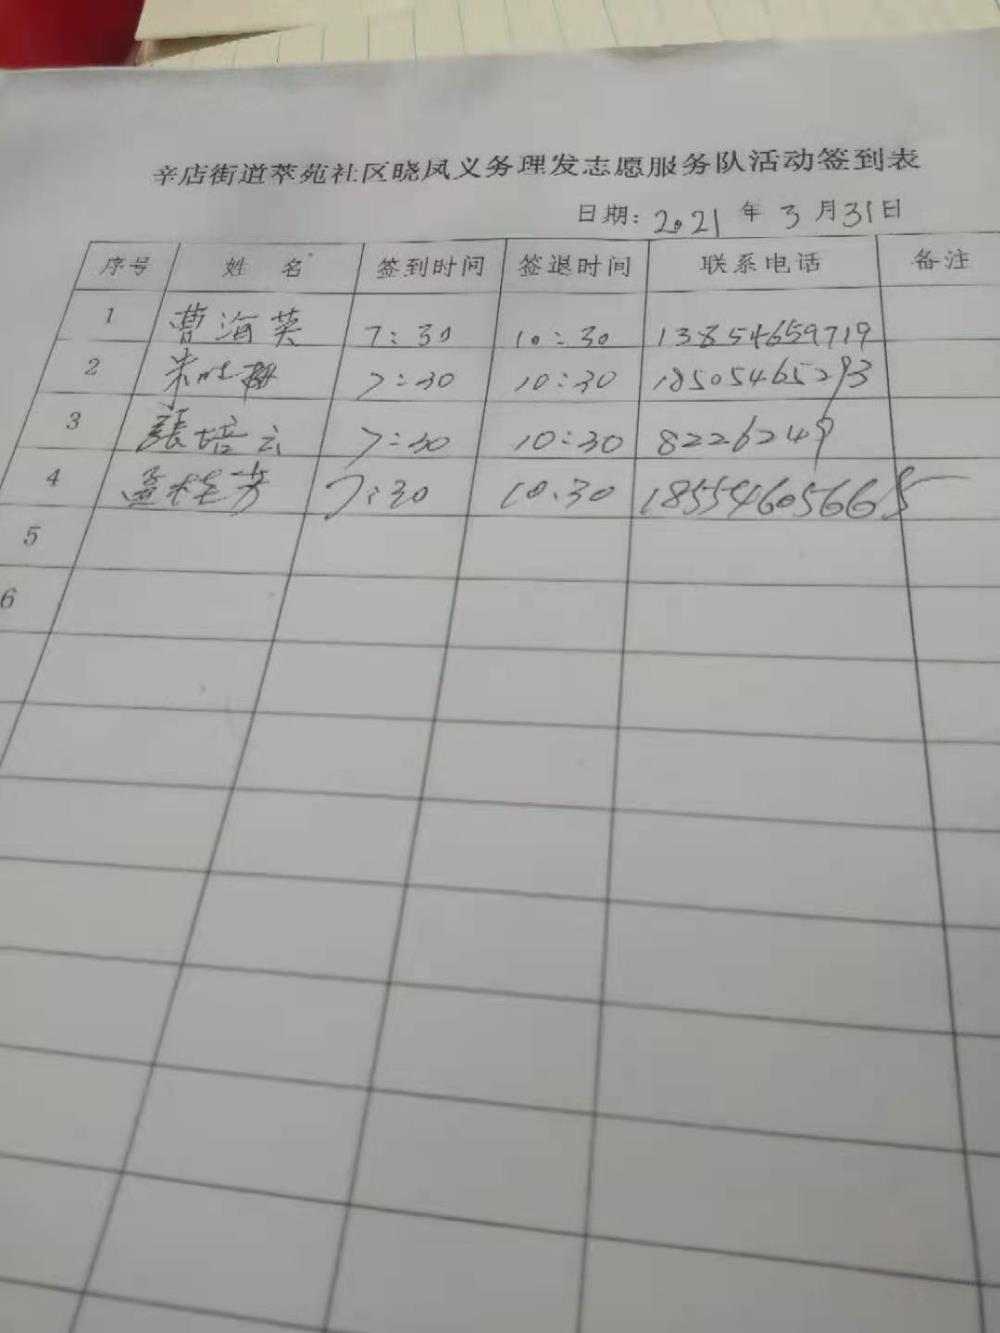 辛店街道萃苑社区晓凤义务理发志愿服务队活动签到表
日期: 2021 年 3 月 31 日
序号 姓 名 签到时间 签退时间 联系电话 备注
1 曹海英 7:30 10:30 13854659719
2 7:30 10:30 18505465293
3 張培云 7:30 10:30 8226249
4 孟桂芳 7:30 10:30 18554605665
5
6